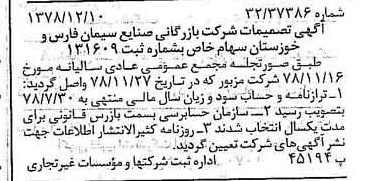 شماره ۳۲/۳۷۳۸۶ ۱۳۷۸/۱۲/۱۰
آگهی تصمیمات شرکت بازرگانی صنایع سیمان فارس و
خوزستان سهام خاص بشماره ثبت ۱۳۱۶۰۹
طبق صورتجلسه مجمع عمومی عادی سالیانه مورخ
۷۸/۱۱/۱۶ شرکت مزبور که در تاریخ ۷۸/۱۱/۲۷ واصل گردید:
۱ـ ترازنامه و حساب سود و زیان سال مالی منتهی به ۷۸/۷/۳۰
بتصویب رسید ۲ـ سازمان حسابرسی بسمت بازرس قانونی برای
مدت یکسال انتخاب شدند ۳ـ روزنامه کثیرالانتشار اطلاعات جهت
نشر آگهی‌های شرکت تعیین گردید.
پ ۴۵۱۹۴ اداره ثبت شرکتها و مؤسسات غیرتجاری